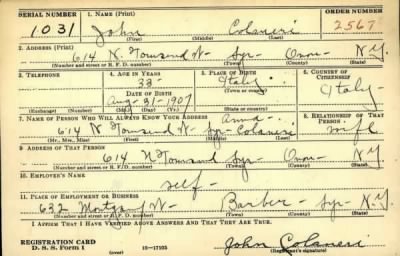 SERIAL NUMBER 1. NAME (Print) ORDER NUMBER
1031 John Colaneri 2567
(First) (Middle) (Last)
2. ADDRESS (Print)
614 N. Townsend St Syr- Onon- N.Y.
(Number and street or R. F. D. number) (Town) (County) (State)
3. TELEPHONE 4. AGE IN YEARS 5. PLACE OF BIRTH 6. COUNTRY OF CITIZENSHIP
33 Italy
DATE OF BIRTH (Town or county)
Aug-31-1907 Italy-
(Exchange) (Number) (Mo.) (Day) (Yr.) (State or country)
7. NAME OF PERSON WHO WILL ALWAYS KNOW YOUR ADDRESS 8. RELATIONSHIP OF THAT PERSON
Anna-
614 N Townsend St Syr- Colaneri wife
(Mr., Mrs., Miss) (First) (Middle) (Last)
9. ADDRESS OF THAT PERSON
614 N Townsend Syr- Onon- N.Y.
(Number and street or R. F. D. number) (Town) (County) (State)
10. EMPLOYER'S NAME
self-
11. PLACE OF EMPLOYMENT OR BUSINESS
632 St- Barber- Syr- N.Y.
(Number and street or R. F. D. number) (Town) (County) (State)
I AFFIRM THAT I HAVE VERIFIED ABOVE ANSWERS AND THAT THEY ARE TRUE.
REGISTRATION CARD
D. S. S. Form 1 16—17105 John Colaneri
(over) (Registrant's signature)